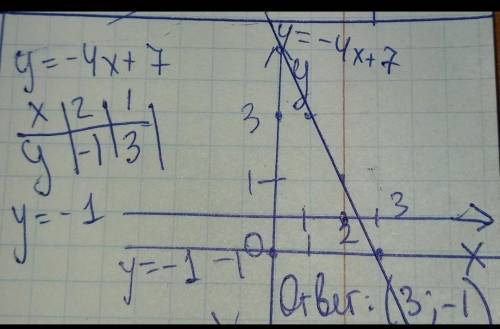 y = -4x + 7
y = -4x + 7
x 2 1
y -1 3
y
3
1
y = -1
0
1
2
3
x
y = -1
-1
Ответ: (3; -1)